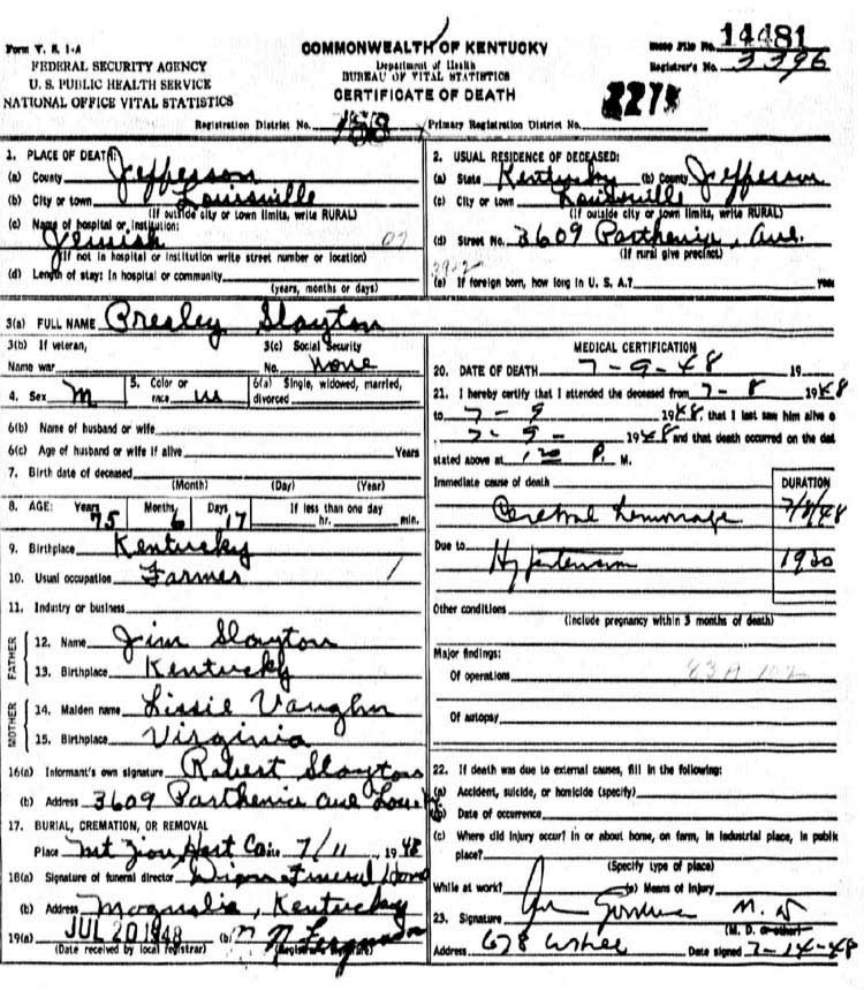 Form V. S. 1-A
FEDERAL SECURITY AGENCY
U. S. PUBLIC HEALTH SERVICE
NATIONAL OFFICE VITAL STATISTICS
COMMONWEALTH OF KENTUCKY
Department of Health
BUREAU OF VITAL STATISTICS
CERTIFICATE OF DEATH
File No. 14481
Registrar's No. 3396
Registration District No.
Primary Registration District No.
1. PLACE OF DEATH:
(a) County Jefferson
(b) City or town Louisville
(If outside city or town limits, write RURAL)
(c) Name of hospital or institution:
Jewish 07
(If not in hospital or institution write street number or location)
(d) Length of stay: In hospital or community
(years, months or days)
2. USUAL RESIDENCE OF DECEASED:
(a) State Kentucky (b) County Jefferson
(c) City or town Louisville
(If outside city or town limits, write RURAL)
(d) Street No. 3609 Parthenia, Ave.
(If rural give precinct)
(e) If foreign born, how long in U. S. A.? years
3(a) FULL NAME Presley Slayton
3(b) If veteran,
Name war
3(c) Social Security
No. None
4. Sex M
5. Color or
race W
6(a) Single, widowed, married,
divorced
6(b) Name of husband or wife
6(c) Age of husband or wife if alive Years
7. Birth date of deceased
(Month) (Day) (Year)
8. AGE: Years 75 Months 6 Days 17 If less than one day
hr. min.
9. Birthplace Kentucky
10. Usual occupation Farmer
11. Industry or business
FATHER
12. Name Jim Slayton
13. Birthplace Kentucky
MOTHER
14. Maiden name Lissie Vaughn
15. Birthplace Virginia
16(a) Informant's own signature Robert Slayton
(b) Address 3609 Parthenia ave
17. BURIAL, CREMATION, OR REMOVAL
Place Mt Zion, Hart Co. 7/11, 1948
18(a) Signature of funeral director Funeral Home
(b) Address Magnolia, Kentucky
19(a) JUL 20 1948 (b)
(Date received by local registrar) (Registrar's Signature)
MEDICAL CERTIFICATION
20. DATE OF DEATH 7-9-48 19
21. I hereby certify that I attended the deceased from 7-8 1948
to 7-9 1948, that I last saw him alive o
7-9- 1948 and that death occurred on the dat
stated above at P. M.
Immediate cause of death DURATION
Cerebral hemorrage 7/8/48
Due to Hypertension
Other conditions
(Include pregnancy within 3 months of death)
Major findings:
Of operations 83A 102
Of autopsy
22. If death was due to external causes, fill in the following:
(a) Accident, suicide, or homicide (specify)
(b) Date of occurrence
(c) Where did injury occur? In or about home, on farm, in industrial place, in public
place?
(Specify type of place)
While at work? (e) Means of Injury
23. Signature M. D
(M. D. or other)
Address 678 Date signed 7-14-48